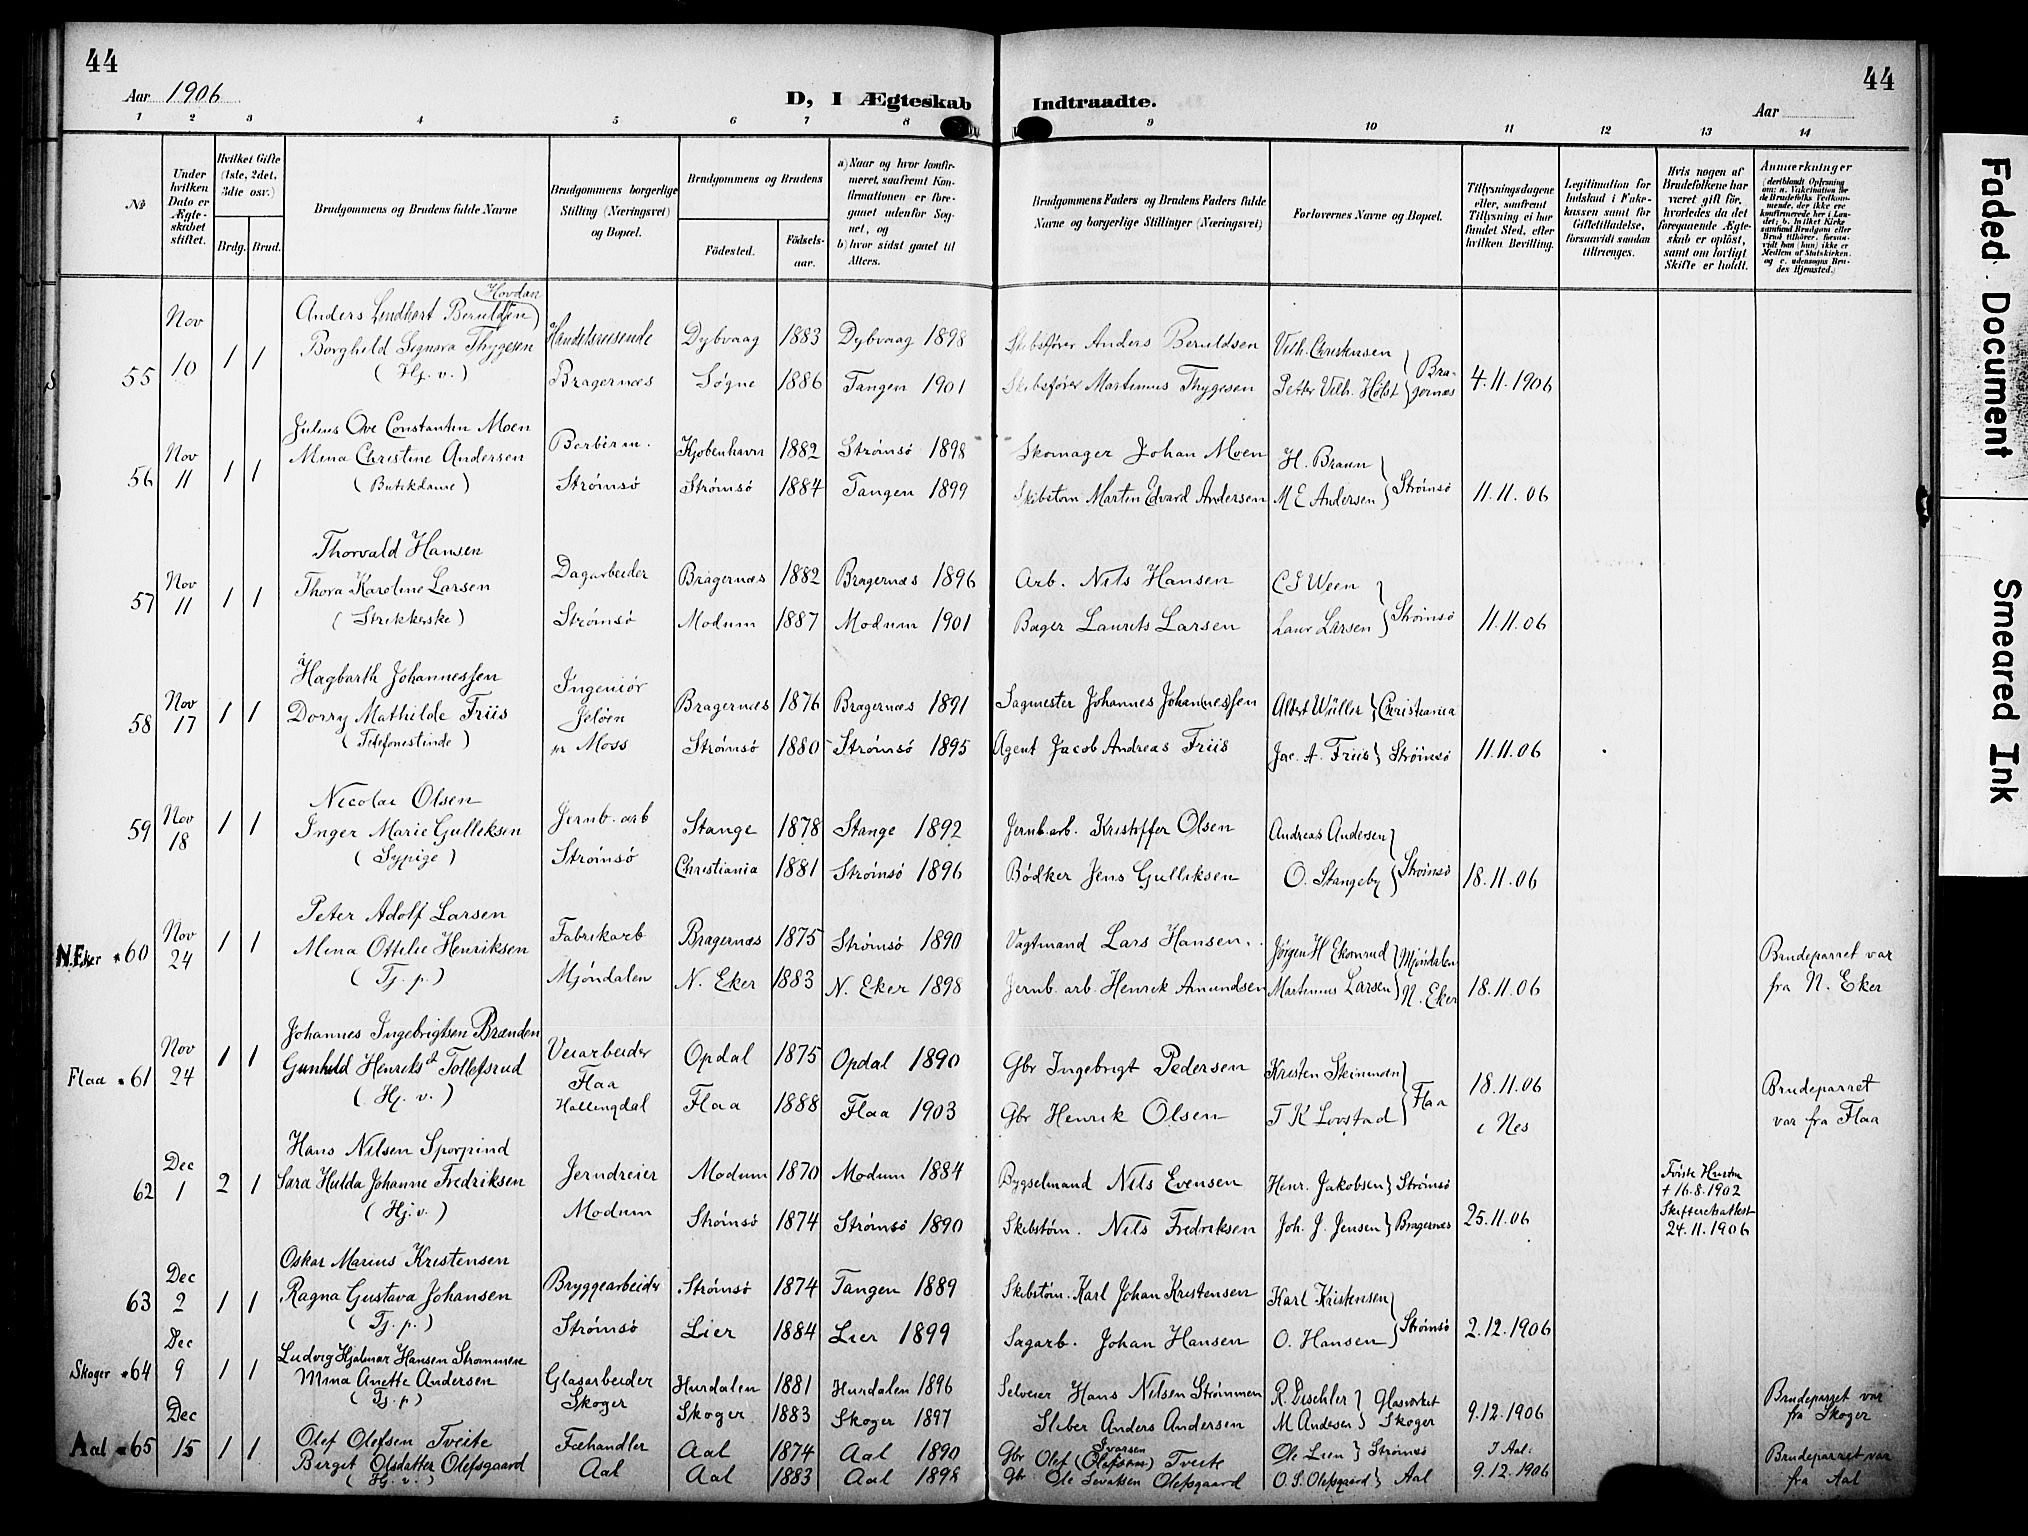 44
44
Aar 1906
D, I Ægteskab Indtraadte.
Aar
1 2 3 4 5 6 7 8 9 10 11 12 13 14
No
Under hvilken Dato er Ægteskabet stiftet.
Hvilket Gifte (1ste, 2det, 3die osv.)
Brdg. Brud.
Brudgommens og Brudens fulde Navne
Brudgommens borgerlige Stilling (Næringsvei) og Bopæl.
Brudgommens og Brudens
Födested.
Födsels-aar.
a) Naar og hvor konfirmeret, saafremt Konfirmationen er foregaaet udenfor Sognet, og b) hvor sidst gaaet til Alters.
Brudgommens Faders og Brudens Faders fulde Navne og borgerlige Stillinger (Næringsvei)
Forlovernes Navne og Bopæl.
Tillysningsdagene eller, saafremt Tillysning ei har fundet Sted, efter hvilken Bevilling.
Legitimation for Indskud i Enkekassen samt for Giftetilladelse, forsaavidt saadan tiltrænges.
Hvis nogen af Brudefolkene har været gift för, hvorledes da det foregaaende Ægteskab er oplöst, samt om lovligt Skifte er holdt.
Anmærkninger
55 Nov 10 1 1
Anders Lendhart Beruldsen (Hovdan)
Borghild Signora Thygesen
(Hj. v.)
Handelsreisende
Bragernæs
Dybvaag 1883 Dybvaag 1898
Søgne 1886 Tangen 1901
Skibsfører Anders Beruldsen
Skibsfører Martinius Thygesen
Vilh. Christensen
Petter Vilh. Holst } Bragernæs
4.11.1906
56 Nov 11 1 1
Julius Ove Constantin Moen
Mina Christine Andersen
(Butikdame)
Barberm.
Strømsö
Kjøbenhavn 1882 Strømsö 1898
Strømsö 1884 Tangen 1899
Skomager Johan Moen
Skibstøm Martin Edvard Andersen
H. Braun
M E Andersen } Strømsö
11.11.06
57 Nov 11 1 1
Thorvald Hansen
Thora Karoline Larsen
(Strikkerske)
Dagarbeider
Strømsö
Bragernæs 1882 Bragernæs 1896
Modum 1887 Modum 1901
Arb. Nils Hansen
Bager Laurits Larsen
C J Ween
Laur Larsen } Strømsö
11.11.06
58 Nov 17 1 1
Hagbarth Johannessen
Dorry Mathilde Friis
(Telefonistinde)
Ingeniör
Jeløen
pr Moss
Bragernæs 1876 Bragernæs 1891
Strømsö 1880 Strømsö 1895
Sagmester Johannes Johannessen
Agent Jacob Andreas Friis
Albert Wüller } Christiania
Jac. A. Friis } Strømsö
11.11.06
59 Nov 18 1 1
Nicolai Olsen
Inger Marie Gulliksen
(Sypige)
Jernb. arb
Strømsö
Stange 1878 Stange 1892
Christiania 1881 Strømsö 1896
Jernb.arb. Kristoffer Olsen
Bödker Jens Gulliksen
Andreas Andersen
O. Stangeby } Strømsö
18.11.06
N.Eker 60 Nov 24 1 1
Peter Adolf Larsen
Mina Ottilie Henriksen
(Tj. p.)
Fabrikarb
Mjöndalen
Bragernæs 1875 Strømsö 1890
N. Eker 1883 N. Eker 1898
Vagtmand Lars Hansen.
Jernb. arb. Henrik Amundsen
Jørgen H Ekornrud } Mjöndalen
Martinius Larsen } N. Eker
18.11.06
Brudeparret var fra N. Eker
Flaa 61 Nov 24 1 1
Johannes Ingebrigtsen Brænden
Gunhild Henriksd Tollefsrud
(Hj. v.)
Veiarbeider
Flaa
Hallingdal
Opdal 1875 Opdal 1890
Flaa 1888 Flaa 1903
Gbr Ingebrigt Pedersen
Gbr Henrik Olsen
Kristen Steinmoen
T K Lovstad } Flaa
18.11.06
i Nes
Brudeparret var fra Flaa
62 Dec 1 2 1
Hans Nilsen Sporpind
Sara Hulda Johanne Fredriksen
(Hj.v.)
Jerndreier
Modum
Modum 1870 Modum 1884
Strømsö 1874 Strømsö 1890
Bygselmand Nils Evensen
Skibstøm. Nils Fredriksen
Henr. Jakobsen } Strømsö
Joh. J. Jensen } Bragernæs
25.11.06
Første Hustru + 16.8.1902
Skifteretsattest 24.11.1906
63 Dec 2 1 1
Oskar Marius Kristensen
Ragna Gustava Johansen
(Tj. p.)
Bryggearbeider
Strømsö
Strømsö 1874 Tangen 1889
Lier 1884 Lier 1899
Skibstøm. Karl Johan Kristensen
Sagarb. Johan Hansen
Karl Kristensen
O. Hansen } Strømsö
2.12.1906
Skoger 64 Dec 9 1 1
Ludvig Hjalmar Hansen Strømmen
Mina Anette Andersen
(Tj. p)
Glasarbeider
Skoger
Hurdalen 1881 Hurdalen 1896
Skoger 1883 Skoger 1897
Selveier Hans Nilsen Strømmen
Sliber Anders Andersen
R. Dischler } Glasverket
M. Andersen } Skoger
9.12.1906
Brudeparret var fra Skoger
Aal 65 Dec 15 1 1
Olef Olefsen Tveite
Birget Olsdatter Olefsgaard
(Hj. v.)
Fæhandler
Aal
Aal 1874 Aal 1890
Aal 1883 Aal 1898
Gbr Olef (Olefsen) Ivarsen Tveite
Gbr Ole Sevatsen Olefsgaard
Ole Lien } Strømsö
O. S. Olefsgaard } Aal
I Aal:
9.12.1906
Brudeparret var fra Aal
Faded Document
Smeared Ink